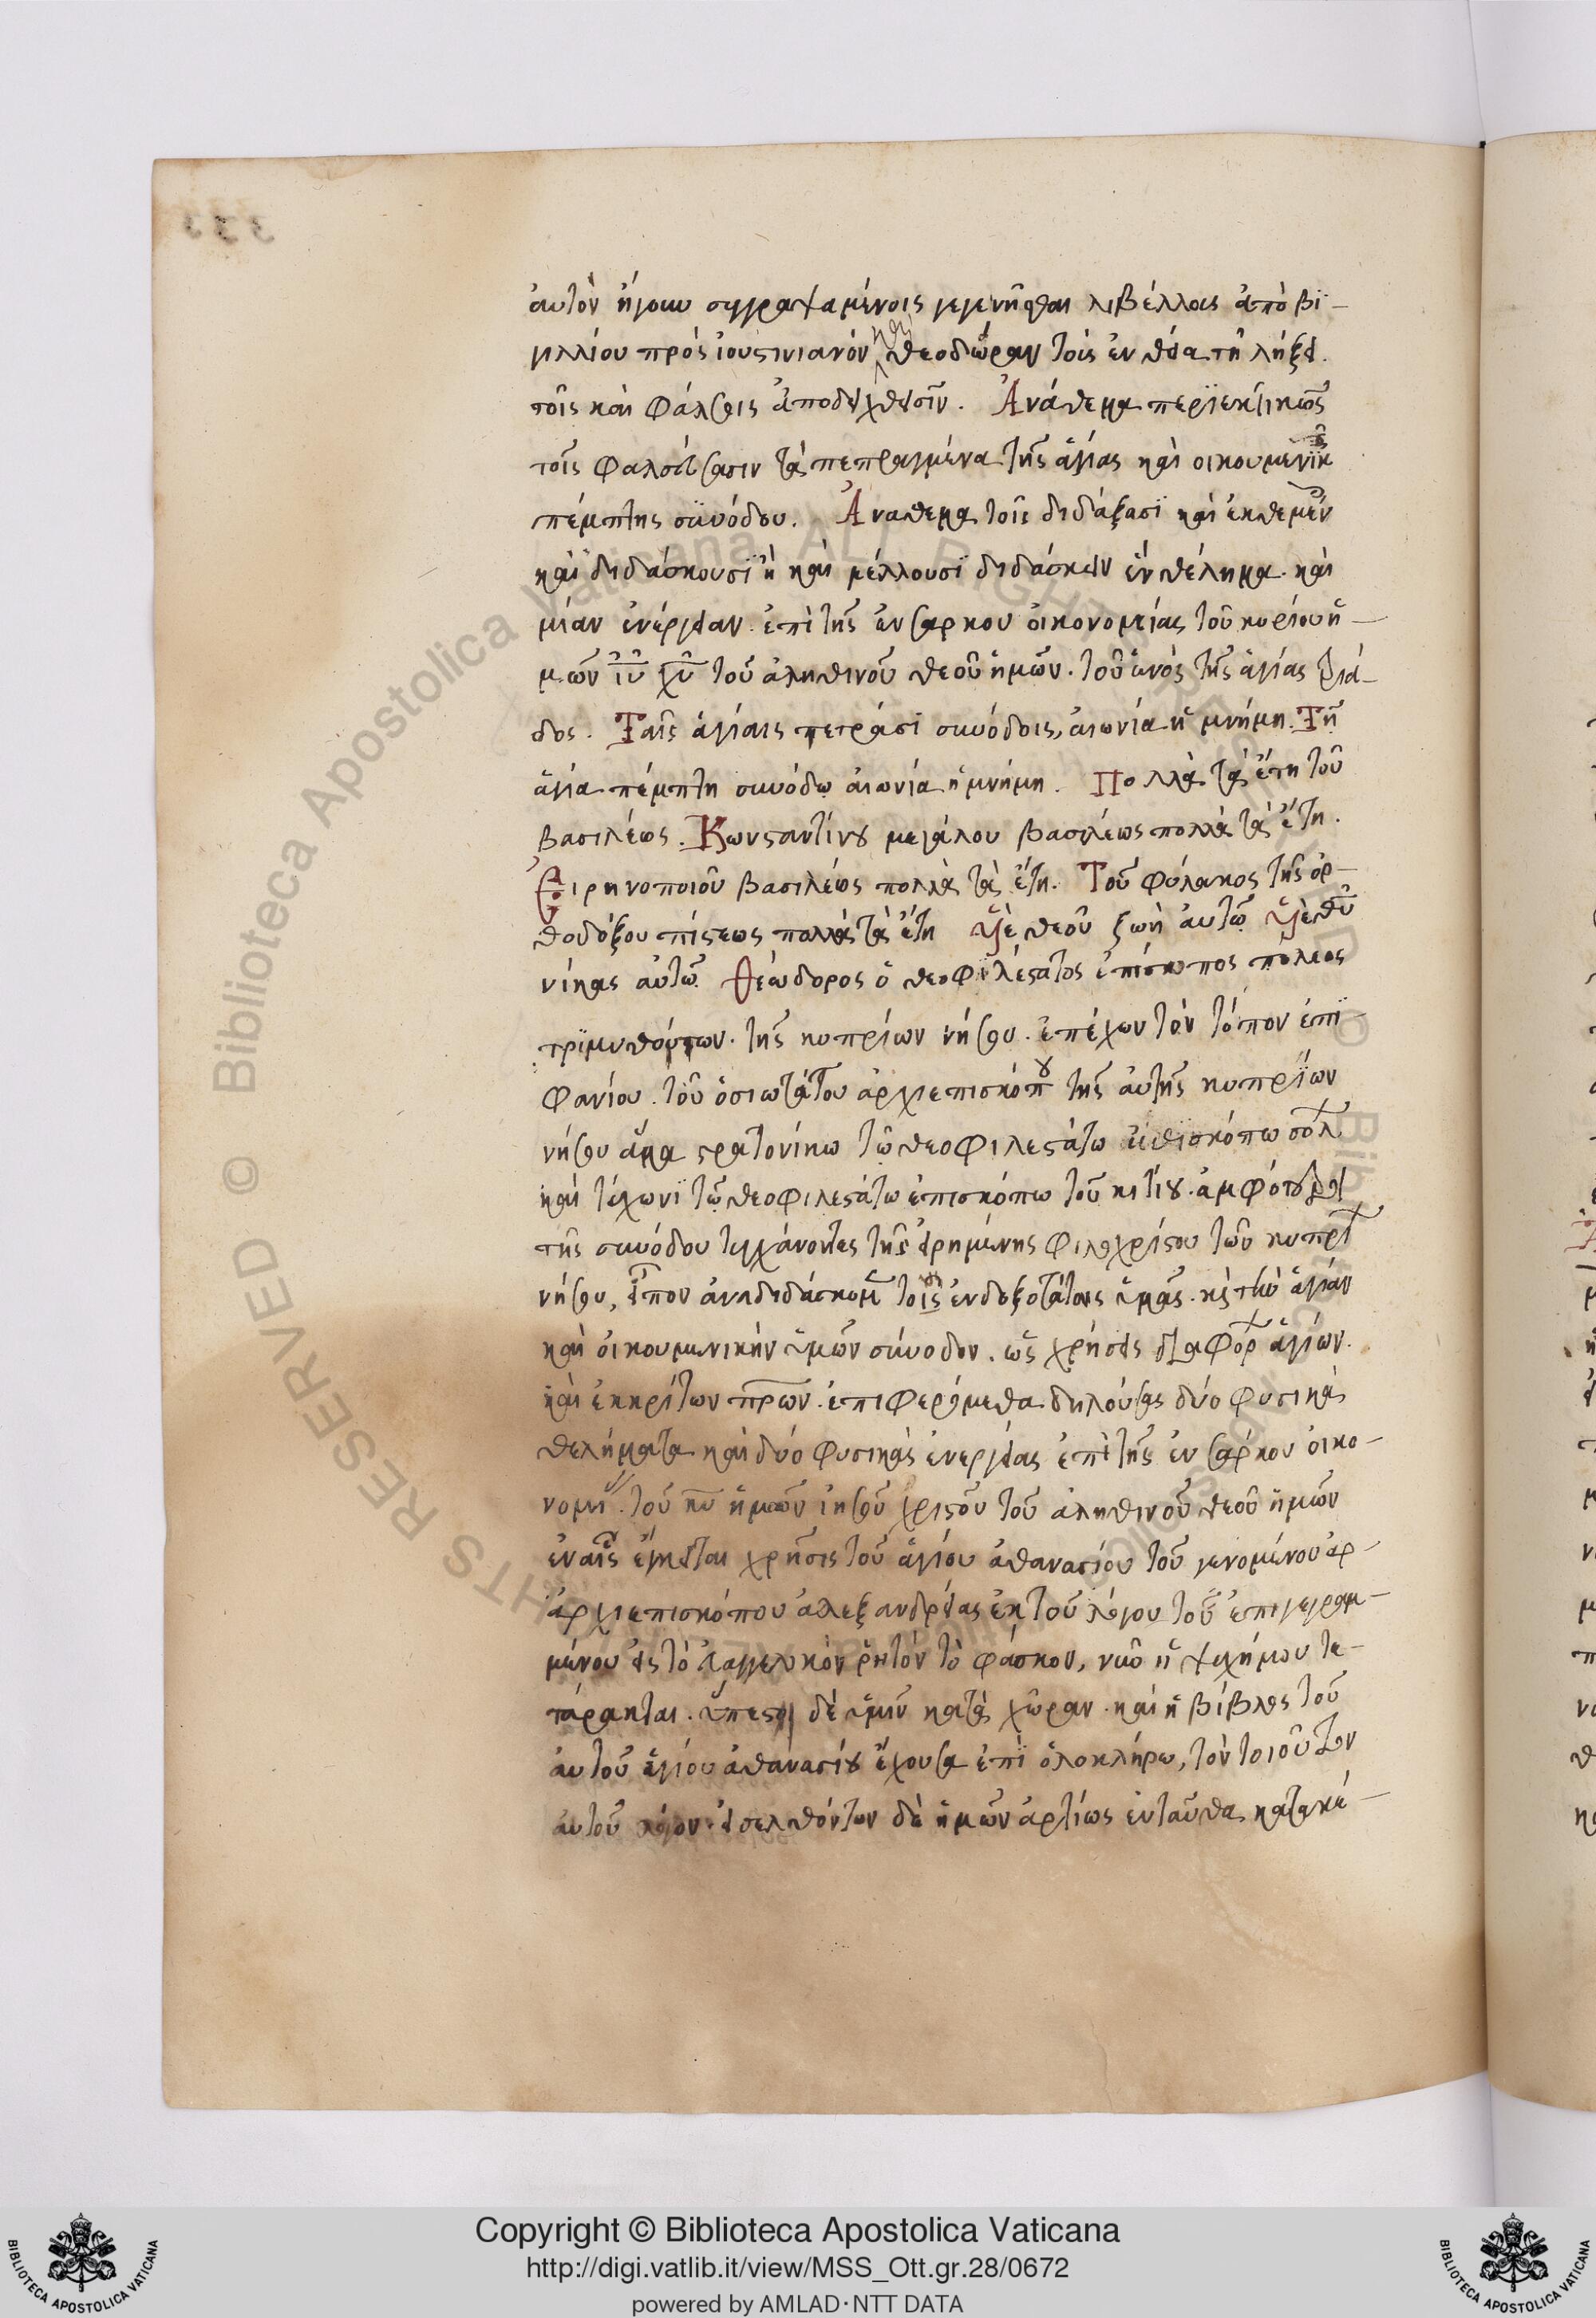 333
αὐτὸν ἤγουν συγγραψαμένοις γεγενῆσθαι λιβέλλοις ἀπὸ βϊ-
γιλλίου πρὸς ἰουστινιανόν καὶ θεοδώραν τοῖς ἐν θεία τῆ λήξει.
τοῖς καὶ φάλσοις ἀποδειχθεῖσϊν. Ἀνάθεμα περϊεκτικῶς
τοῖς φαλσεύσασιν τὰ πεπραγμένα τῆς ἁγίας καὶ οἰκουμενϊκῆς
πέμπτης συνόδου. Ἀναθεμα τοῖς διδάξασϊ καὶ ἐκθεμέν
καὶ διδάσκουσϊ ἢ καὶ μέλλουσϊ διδάσκειν ἓν θέλημα. καὶ
μίαν ἐνέργειαν. ἐπὶ τῆς ἐνσαρκου οἰκονομίας τοῦ κυρίου ἡ-
μῶν ιυ χυ τοῦ ἀληθινοῦ θεοῦ ἡμῶν. τοῦ ἑνὸς τῆς ἁγίας τριά-
δος. Ταῖς ἁγίαις τετράσϊ συνόδοις, αἰωνία ἡ μνήμη. Τῆ
ἁγία πέμπτη συνόδω αἰωνία ἡ μνήμη. Πολλὰ τὰ ἔτη τοῦ
βασιλέως. Κωνσταντίνου μεγάλου βασιλέως πολλὰ τὰ ἔτη.
Εἰρηνοποιοῦ βασιλέως πολλὰ τὰ ἔτη. Τοῦ φύλακος τῆς ὀρ-
θοδόξου πίστεως πολλὰ τὰ ἔτη Υἱὲ θεοῦ ζωὴ αὐτῶ Υἱὲ θυ
νίκας αὐτῶ Θεώδορος ὁ θεοφιλέστατος ἐπίσκοπος πόλεος
τρϊμυθούντων. τῆς κυπρίων νήσου. ἐπέχων τὸν τόπον ἐπϊ-
φανίου. τοῦ ὁσιωτάτου ἀρχιεπισκόπου τῆς αὐτῆς κυπρΐων
νήσου ἅμα στρατονίκω τῶ θεοφιλεστάτω ἐπισκόπω σολ
καὶ τύχωνϊ τῶ θεοφιλεστάτω ἐπισκόπω τοῦ κιτίου. ἀμφότεροι
τῆς συνόδου τυγχάνοντες τῆς εἰρημένης φιλοχρίστου τῶν κυπρι
νήσου, εἶπον ἀναδιδάσκομεν τοὺς ἐνδοξοτάτους ὑμᾶς. καὶ τὴν ἁγίαν
καὶ οἰκουμενικὴν ὑμῶν σύνοδον. ὡς χρήσεις διαφόρ ἁγίων.
καὶ ἐκκρίτων πρων. ἐπιφερόμεθα δηλούσας δύο φυσικὰ
θελήματα καὶ δύο φυσικὰς ἐνεργείας ἐπὶ τῆς ἐνσάρκου οἰκο-
νομι τοῦ κυ ἡμῶν ἰησοῦ χριστοῦ τοῦ ἀληθινοῦ θεοῦ ἡμῶν
ἐν αἷς ἔγκειται χρῆσις τοῦ ἁγίου ἀθανασίου τοῦ γενομένου ἀρ-
ἀρχιεπισκόπου ἀλεξανδρείας ἐκ τοῦ λόγου τοῦ ἐπιγεγραμ-
μένου εἰς τὸ εὐαγγελικὸν ῥητόν τὸ φάσκον, νῦν ἡ ψυχή μου τε-
τάρακται. ὕπεστι δὲ ὑμῖν κατὰ χῶραν. καὶ ἡ βίβλος τοῦ
αὐτοῦ ἁγίου ἀθανασίου ἔχουσα ἐπϊ ὁλοκλήρω, τὸν τοιοῦτον
αὐτοῦ λόγον. εἰσελθόντων δὲ ἡμῶν ἀρτίως ἐνταῦθα κατακέ-
Copyright © Biblioteca Apostolica Vaticana
http://digi.vatlib.it/view/MSS_Ott.gr.28/0672
powered by AMLAD·NTT DATA